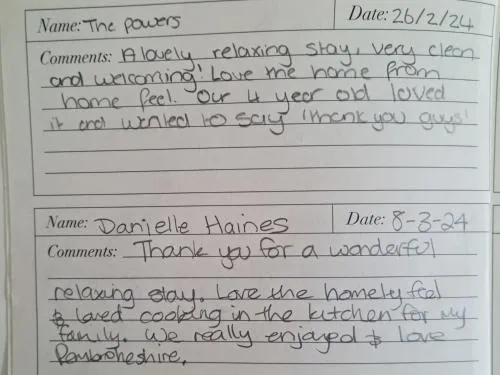 Name: The powers Date: 26/2/24
Comments: A lovely relaxing stay, very clean
and welcoming! Love the home from
home feel. Our 4 year old loved
it and wanted to say 'thank you guys'
Name: Danielle Haines Date: 8-3-24
Comments: Thank you for a wonderful
relaxing stay. Love the homely feel
& loved cooking in the kitchen for my
family. We really enjoyed & love
Pembrokeshire.